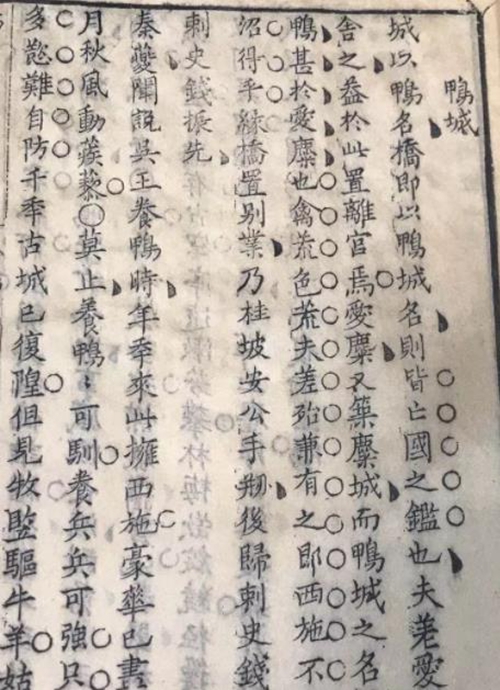 鴨城
城以鴨名橋即以鴨城名則皆亡國之鑑也夫差愛
舍之益於此置離宮焉愛麋又築麋城而鴨城之名
鴨甚於愛麋也禽荒色荒夫差殆兼有之即西施不
沼得乎綠橋置别業乃桂坡安公手剏後歸刺史錢
刺史錢振先
秦夔聞説吳王養鴨時年季來此擁西施豪華已盡
月秋風動蒺藜莫止養鴨〻可馴養兵兵可強只
多慾難自防千季古城已復隍但見牧監驅牛羊姑